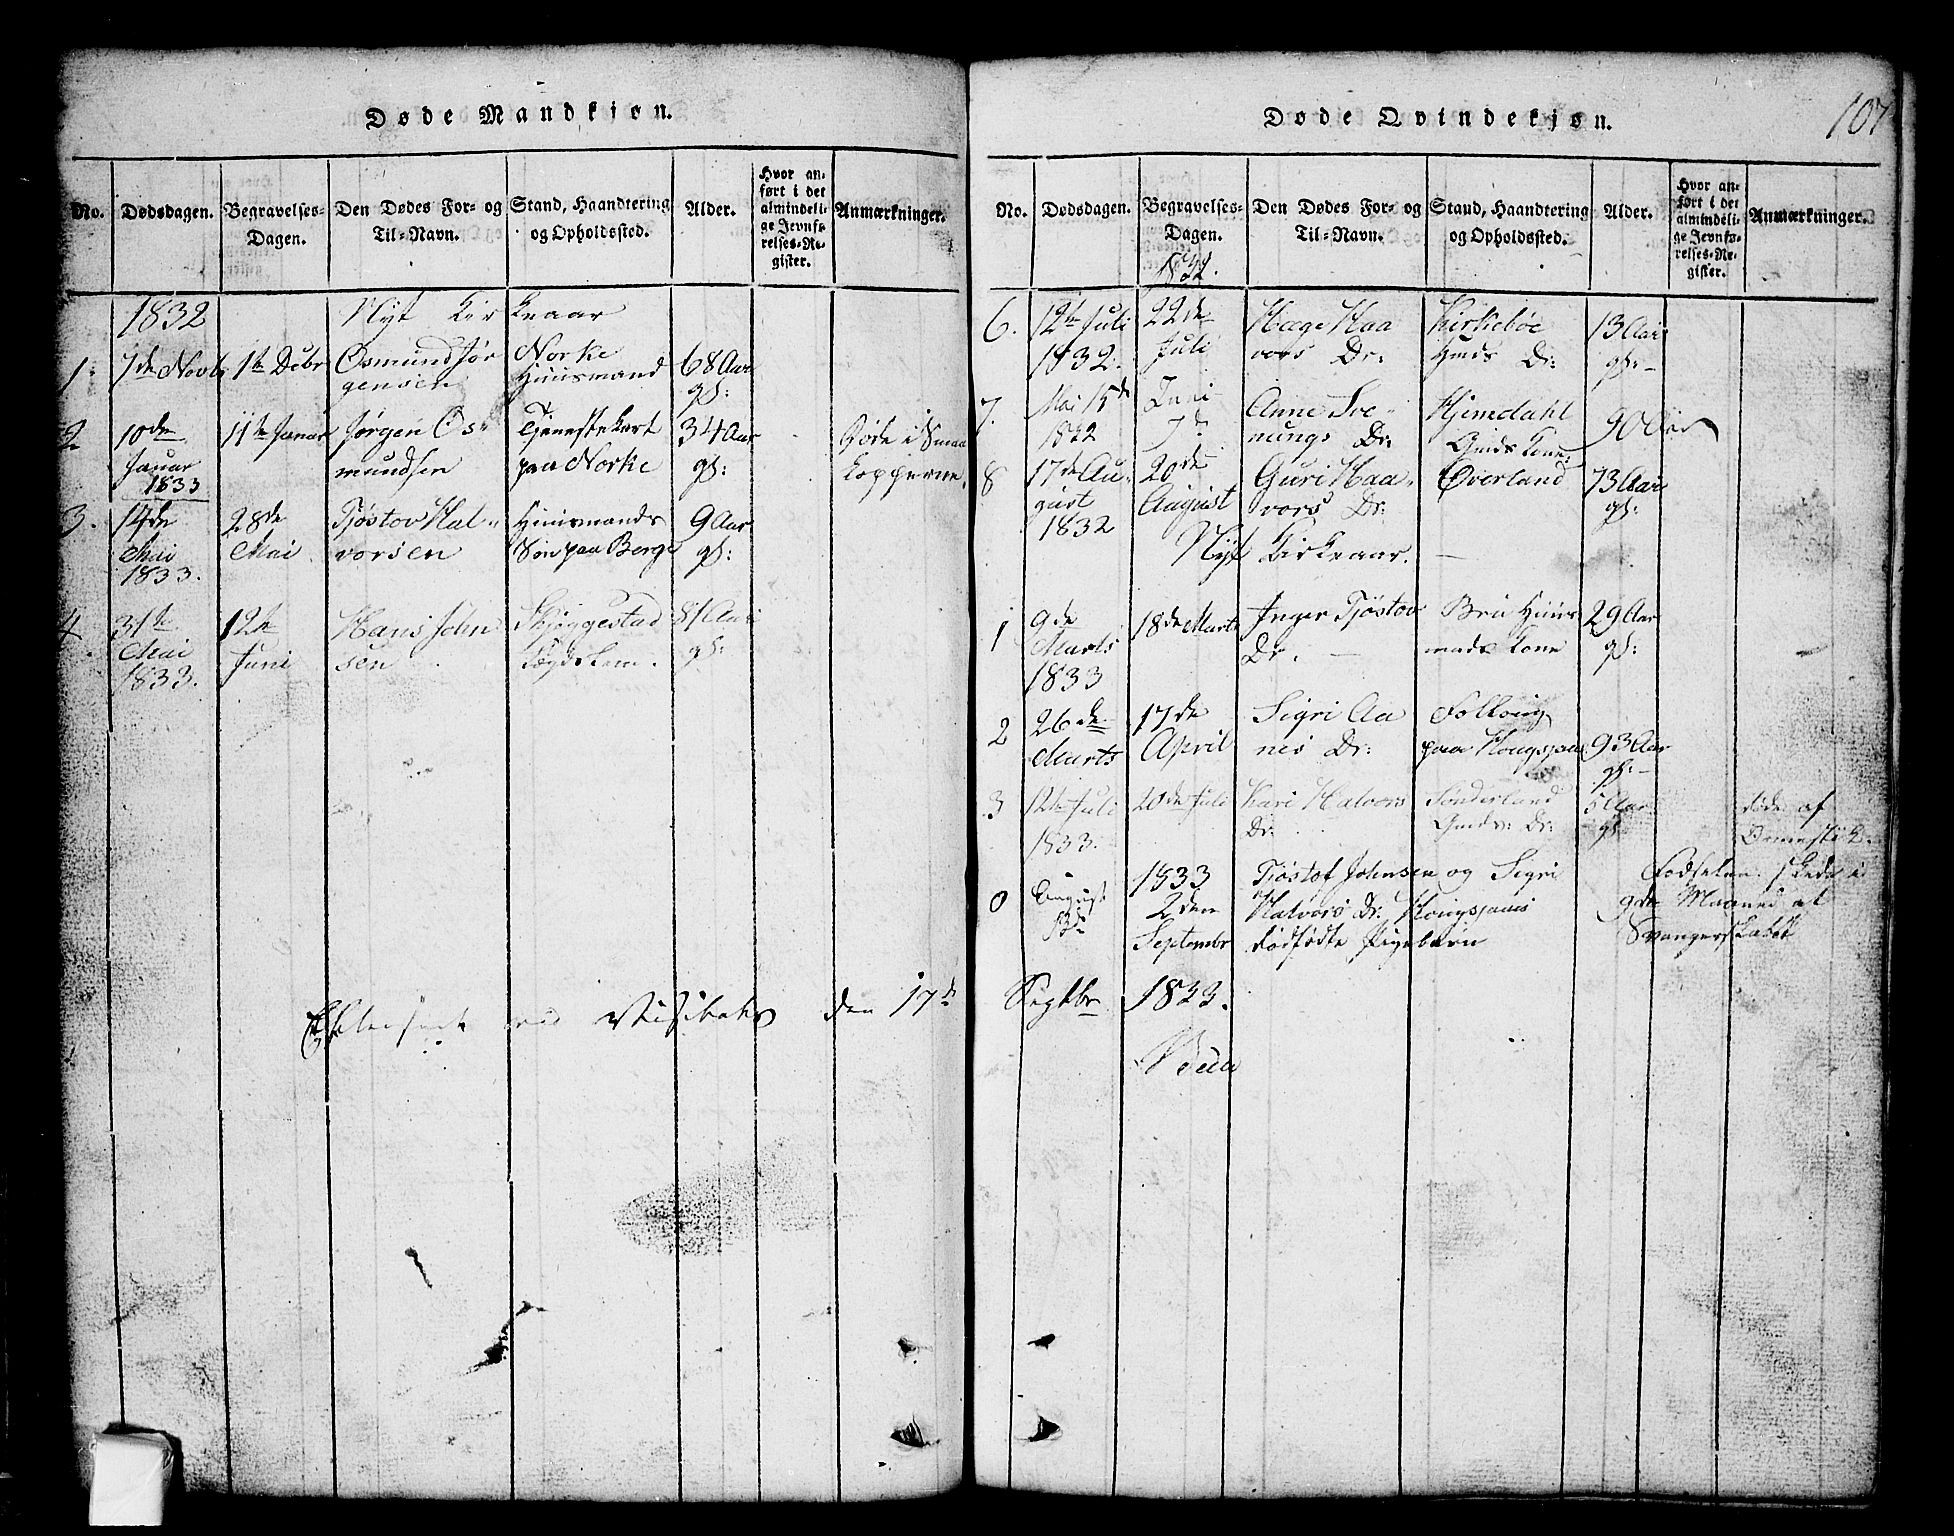 Døde Mandkjøn.
No.
Dødsdagen.
Begravelses-
Dagen.
Den Dødes For- og
Til-Navn.
Stand, Haandtering
og Opholdssted.
Alder.
Hvor an-
ført i det
almindeli-
ge Jevnfø-
relses-Re-
gister.
Anmærkninger.
1832
Nyt Kirkeaar
1.
7de Novbr
1ste Debr
Osmund Jør
gensen
Norke
Huusmand
68 Aar
gl:
2
10de
Januar
1833
11te Januar
Jørgen Os-
mundsen
Tjenestekarl
paa Norke
34 Aar
gl:
Døde i Smaa
kopperne.
3.
14de
Mai
1833.
28de
Mai
Tjøstov Hal-
vorsen
Huusmands
Søn paa Berge
9 Aar
gl:
4
31te
Mai
1833.
12te
Juni
Hans John
sen
Skjøggestad
Lægdslem.
81 Aar
gl:
den 17de
Døde Qvindekjøn.
107
No.
Dødsdagen.
Begravelses-
Dagen.
1832.
Den Dødes For- og
Til-Navn.
Stand, Haandtering
og Opholdssted.
Alder.
Hvor an-
ført i det
almindeli-
ge Jevnfø-
relses-Re-
gister.
Anmærkninger.
6.
12te Juli
1832.
22de
Juli
Hæge Haa
vors Dr:
Kirkebøe
Gmds Dr:
13 Aar
gl:
7.
Mai 15de
1832
Juni
7de
Anne Sve-
nungs Dr:
Hjemdahl
Gmds Kone
90 Aar
8
17de Au-
gust
1832
20de
August
Guri Haa-
vors Dr:
Overland
73 Aar
gl:
Nyt Kirkeaar.
1
9de
Marts
1833
18de Marts
Inger Tjøstov
Dr.
Bru Huus
mands Kone
29 Aar
gl:
2
26de
Marts
17de
April
Sigri Aa
nes Dr:
Folloug
paa Kougsjaas
93 Aar
gl:
3
12te Juli
1833.
20de Juli
Kari Halvors
Dr:
Sønderland
Gmds: Dr:
5 Aar
gl.
døde af
0
August
1833
2den
Septembr
Tjøstof Johnsen og Sigri
Halvors Dr: Kougsjaas
dødfødte Pigebarn
Fødselen skede i
9de Maaned af
Svangerskabet
Septbr 1833.